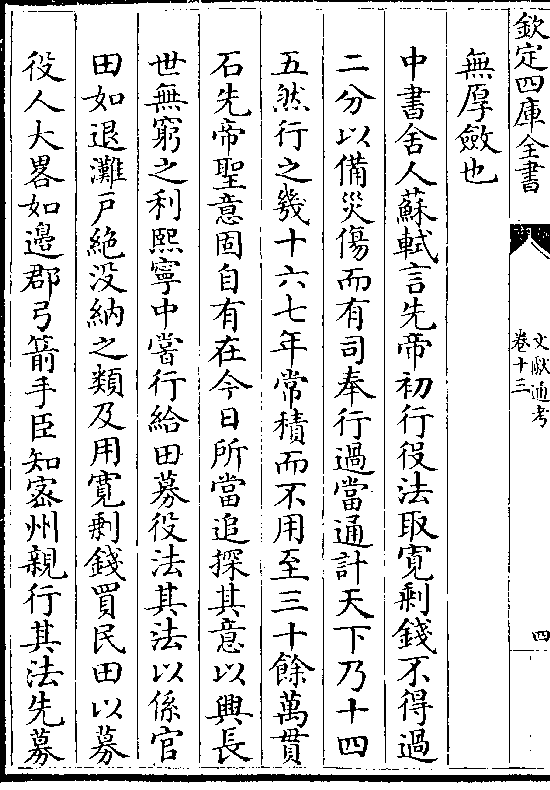 欽定四庫全書
文獻通考
卷十三
四
無厚斂也
中書舍人蘇軾言先帝初行役法取寛剰錢不得過
二分以備災傷而有司奉行過當通計天下乃十四
五然行之幾十六七年常積而不用至三十餘萬貫
石先帝聖意固自有在今日所當追探其意以興長
世無窮之利熙寧中嘗行給田募役法其法以係官
田如退灘戸絶没納之類及用寛剰錢買民田以募
役人大畧如邊郡弓箭手臣知宻州親行其法先募